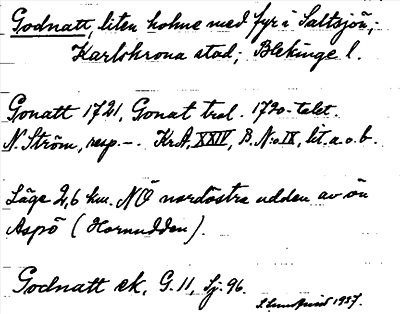 Godnatt, liten holme med fyr i Saltsjön;
Karlskrona stad; Blekinge l.
Gonatt 1721, Gonat trol. 1720-talet.
N. Ström, resp. –. Kr.A. XXIV, B. N:o IX, lit. a. o. b.
Läge 2,6 km. NÖ nordöstra udden av ön
Aspö (Hornudden).
Godnatt ek. G. 11, Sj. 96.
S. Lundqvist 1937.